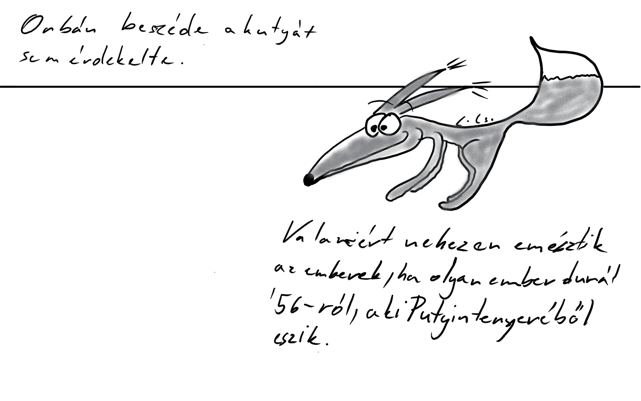 Orbán beszéde a kutyát
sem érdekelte.
L. Cs.
Valamiért nehezen emésztik
az emberek, ha olyan ember dumál
'56-ról, aki Putyin tenyeréből
eszik.